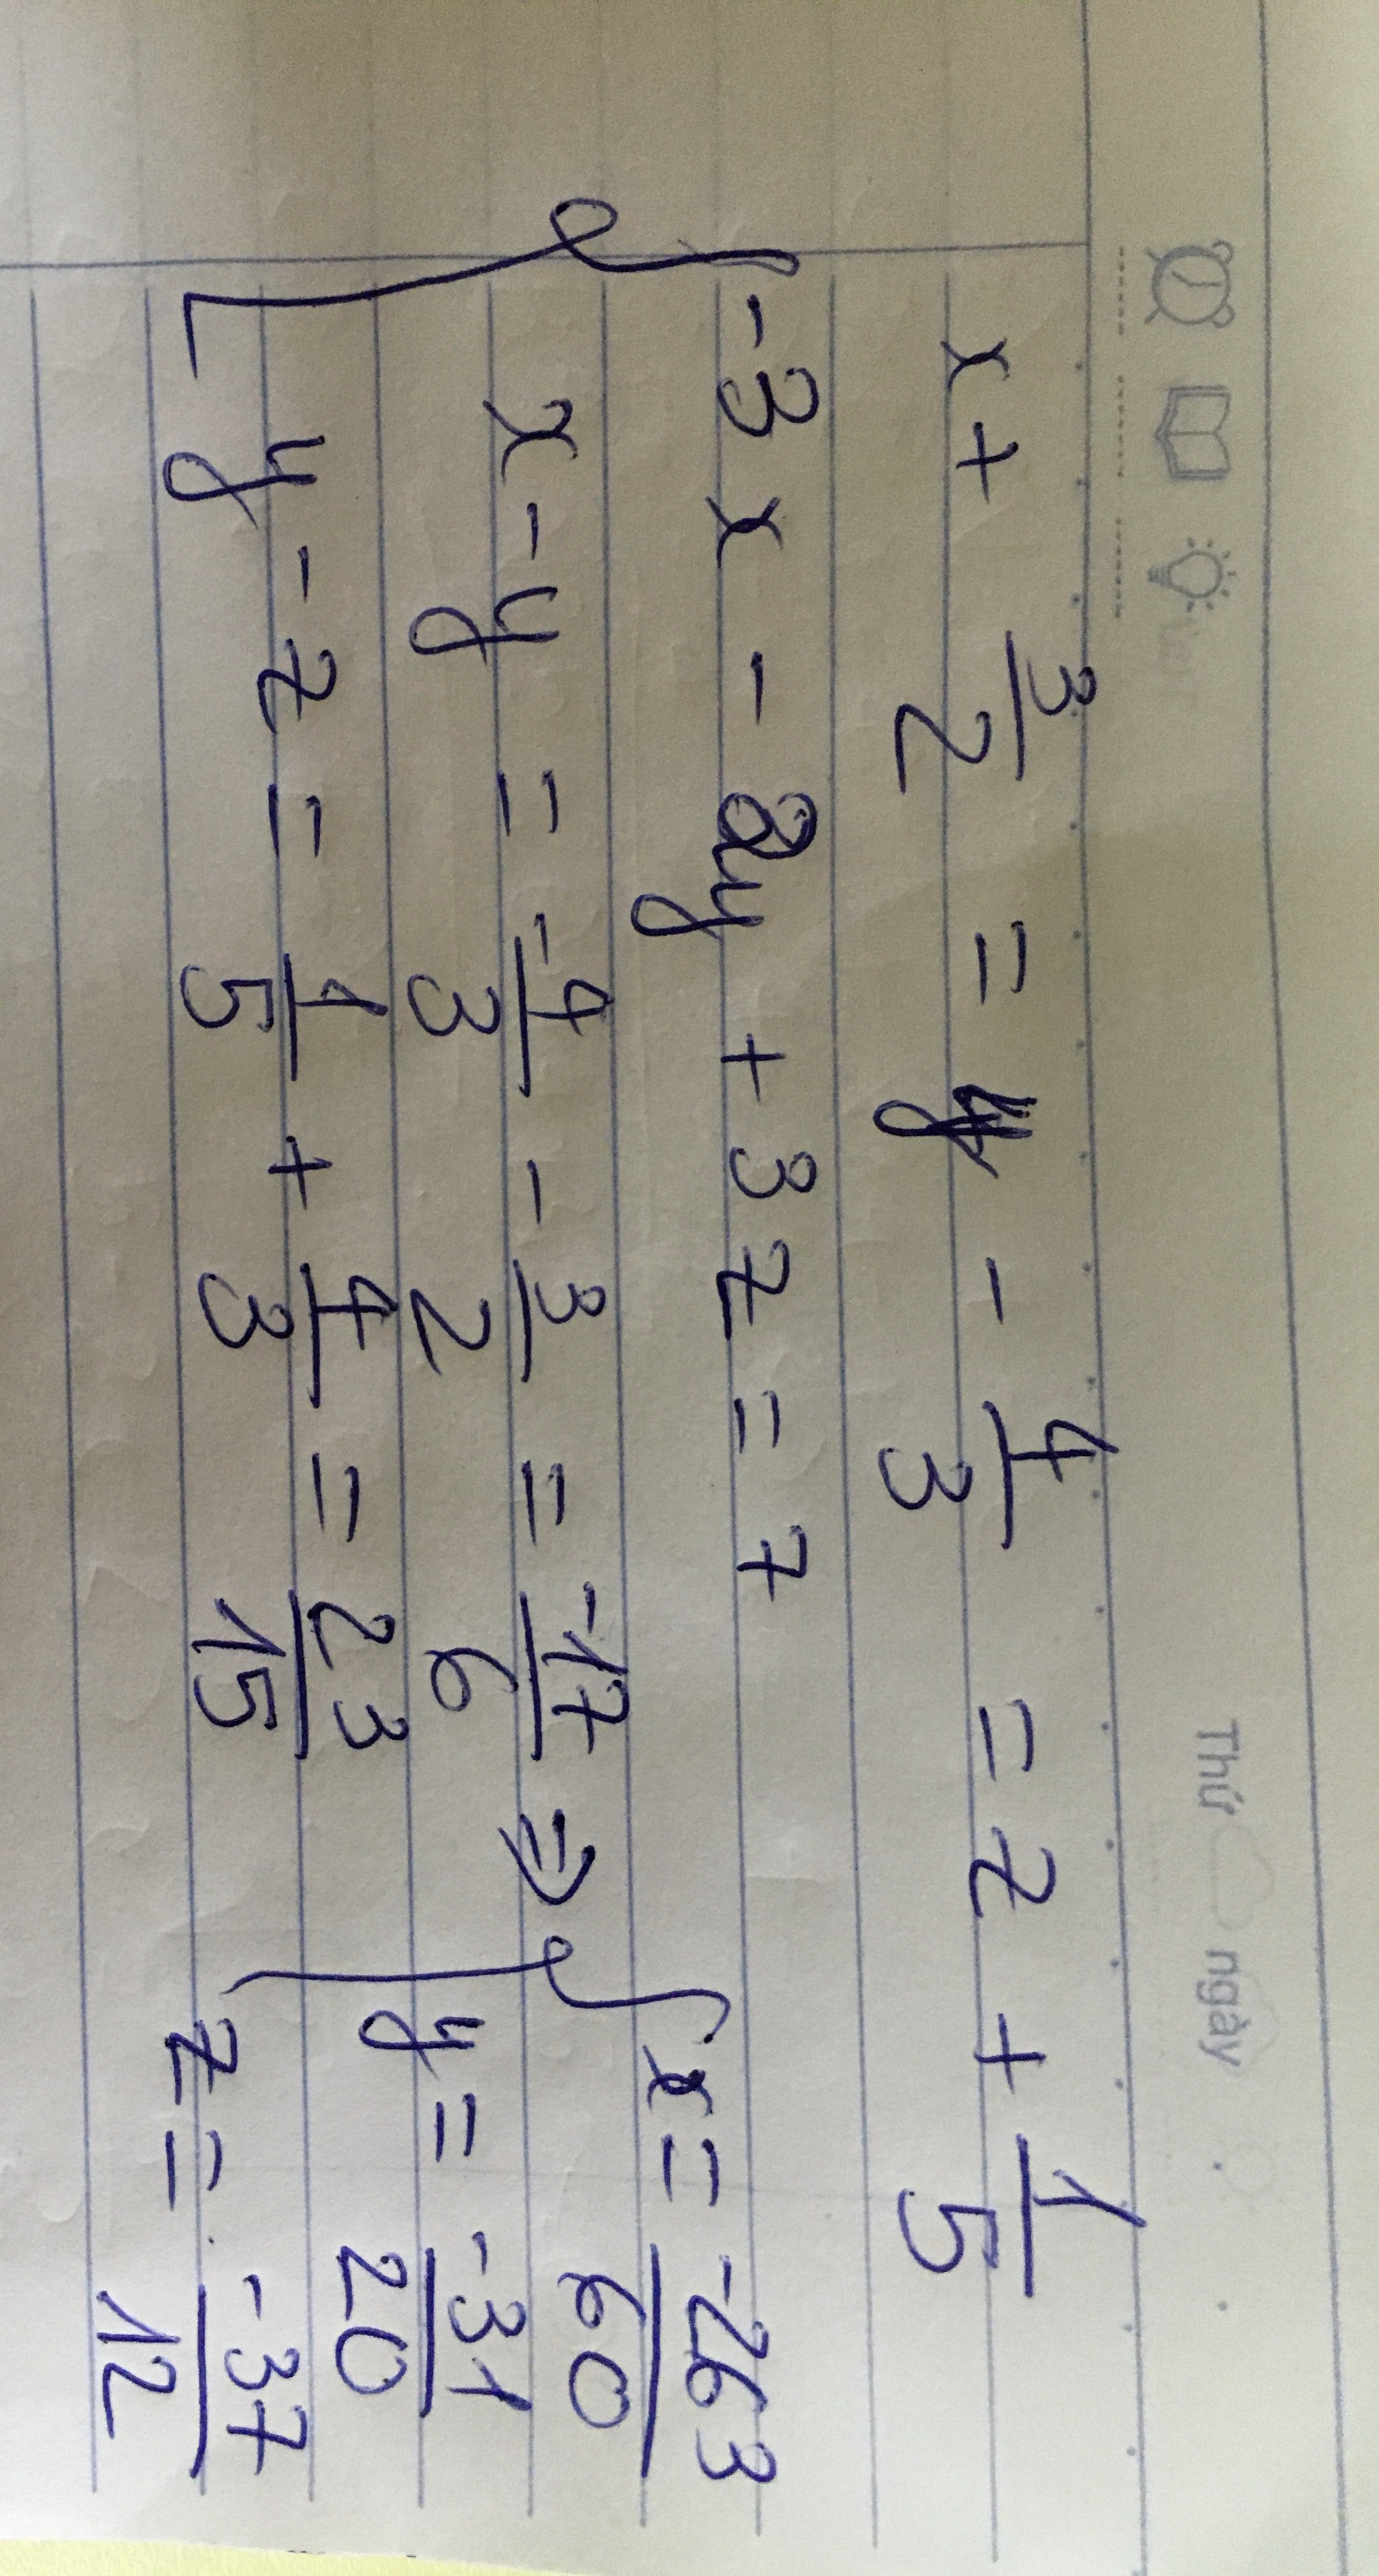 Thứ ngày
x + 3/2 = y - 4/3 = z + 1/5
-3x - 2y + 3z = 7
x - y = -4/3 - 3/2 = -17/6 ⇒
y - z = 1/5 + 4/3 = 23/15
x = -263/60
y = -31/20
z = -37/12